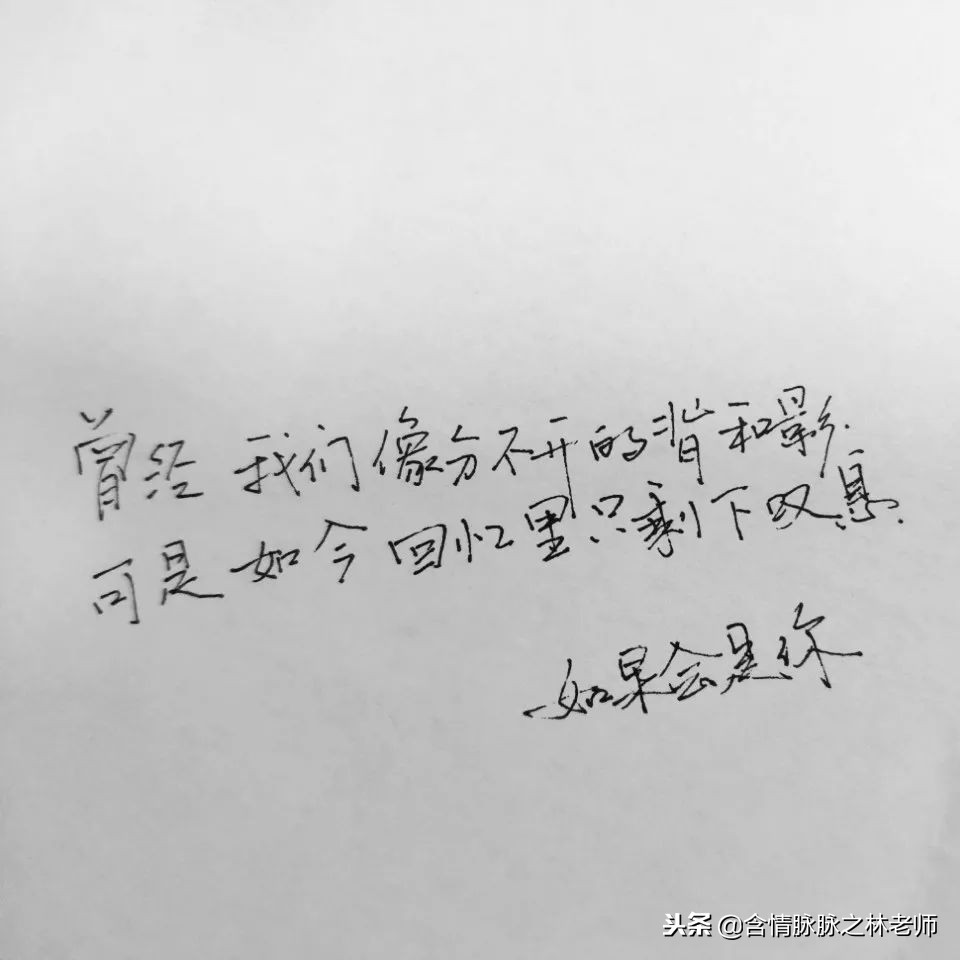 曾经 我们像分不开的背和影.
可是如今回忆里只剩下叹息.
一如果会是你
头条 @含情脉脉之林老师